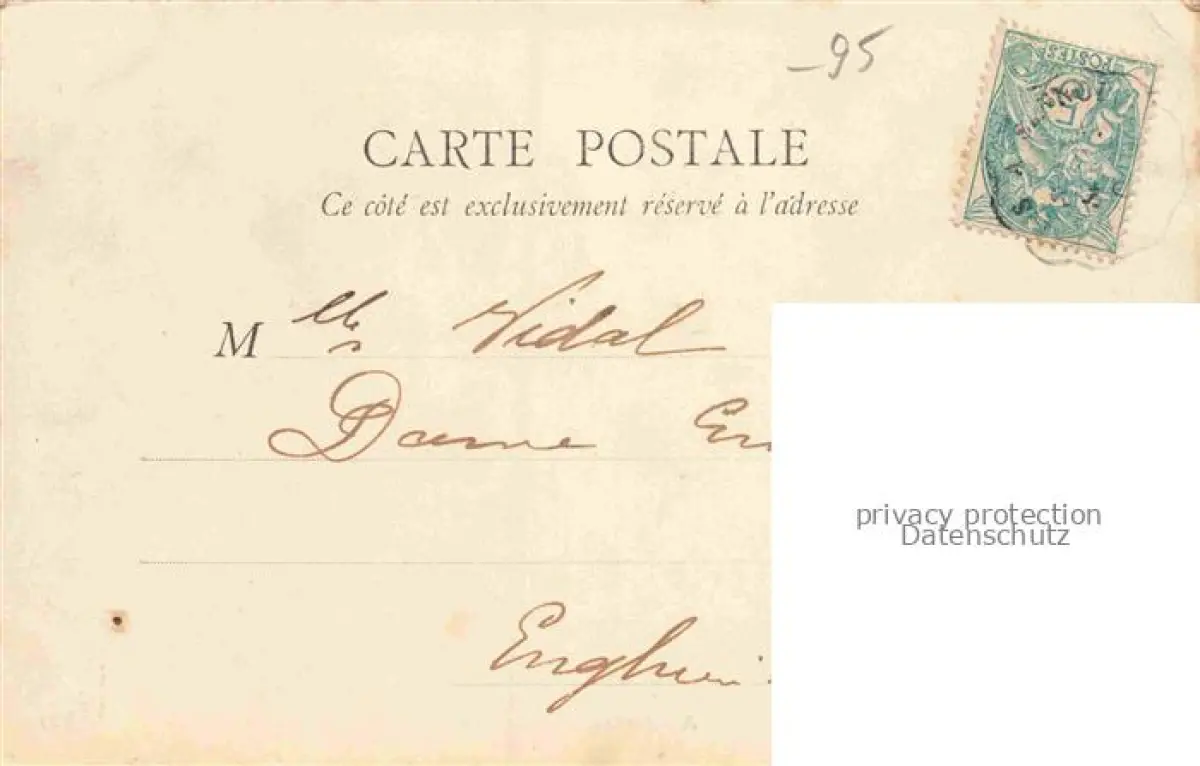 -95
POSTES
CARTE POSTALE
Ce côté est exclusivement réservé à l'adresse
M elle Vidal
Dame
privacy protection
Datenschutz
Enghien